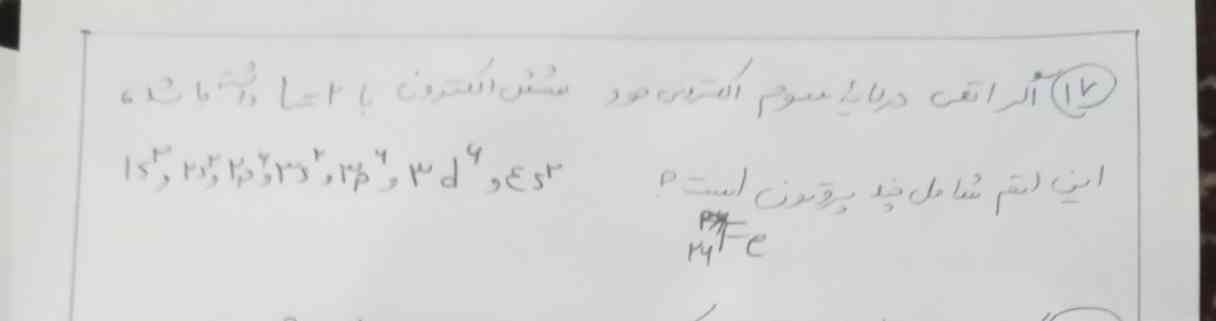 ۱۷ اگر اتمی در لایهٔ سوم الکترونی خود شش الکترون با l=۲ داشته باشد،
این اتم شامل چند پروتون است؟ 1s۲, ۲s۲, ۲p۶, ۳s۲, ۳p۶, ۳d۶, ۴s۲
۲۶Fe